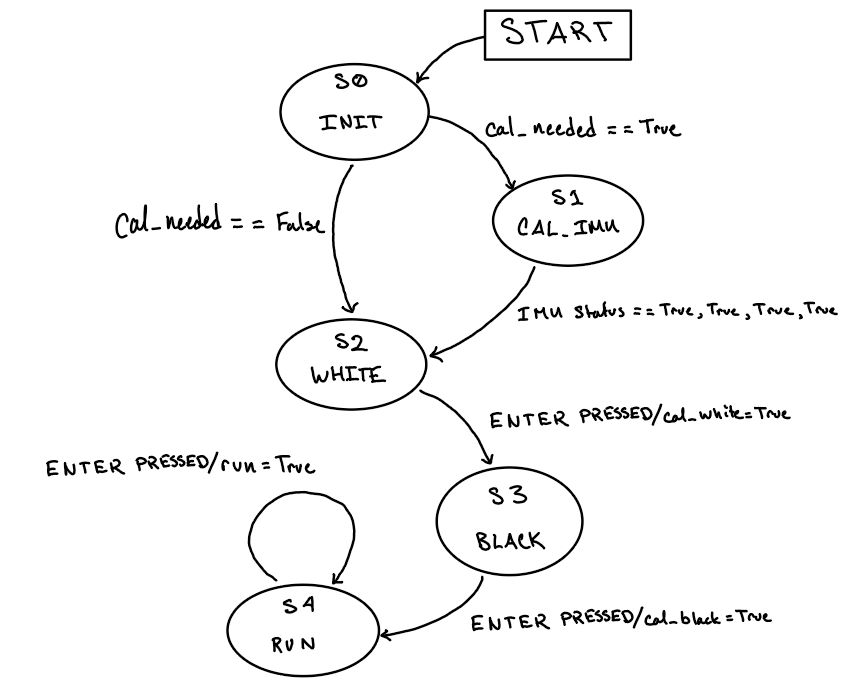 START
SØ
INIT
Cal_needed == True
S1
CAL_IMU
Cal_needed == False
IMU Status == True, True, True, True
S2
WHITE
ENTER PRESSED/cal_white=True
ENTER PRESSED/run=True
S3
BLACK
S4
RUN
ENTER PRESSED/cal_black=True